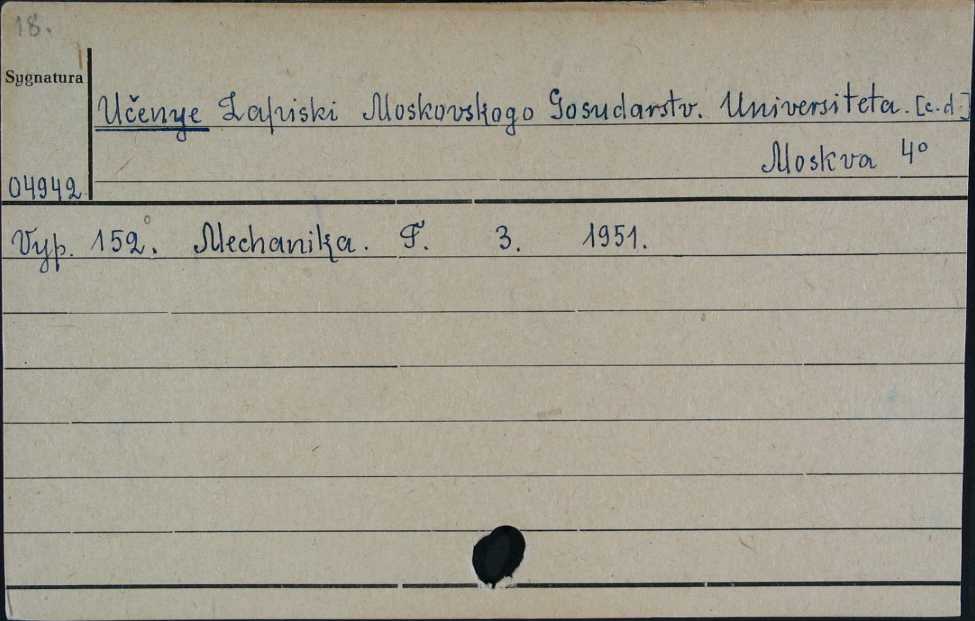 18.
Sygnatura
Učenye Zapiski Moskovskogo Gosudarstv. Universiteta. [c.d.]
Moskva 4°
04942
Vyp. 152. Mechanika. T. 3. 1951.